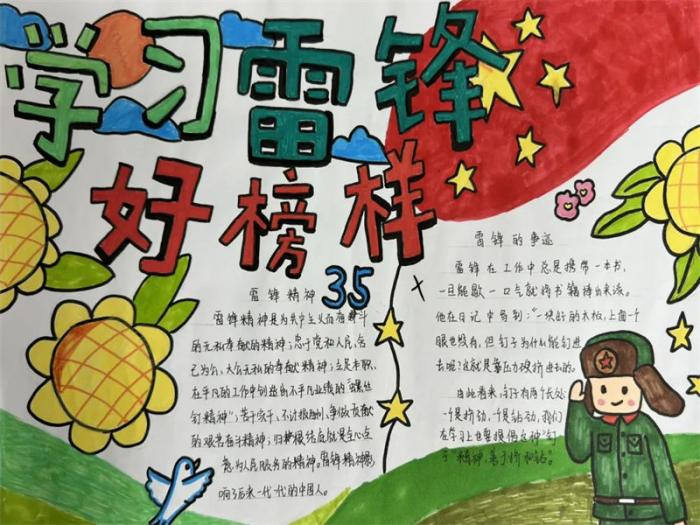 学习雷锋
好榜样
雷锋精神
35
雷锋精神是为共产主义而奋斗
的无私奉献的精神;忠于党和人民,舍
己为公、大公无私的奉献精神;立足本职、
在平凡的工作中创造出不平凡业绩的“螺丝
钉精神”;苦干实干、不计报酬、争做贡献
的艰苦奋斗精神;归根结底就是全心全
意为人民服务的精神。雷锋精神影
响了后来一代一代的中国人。
雷锋的事迹
雷锋在工作中总是携带一本书,
一旦能歇一口气就将书籍掏出来读。
他在日记中写到:“一块好的木板,上面一个
眼也没有,但钉子为什么能钉进
去呢?这就是靠压力硬挤进去的。
由此看来,钉子有两个长处:
一个是挤劲,一个是钻劲,我们
在学习上也要提倡这种“钉
子”精神,善于挤和钻。”